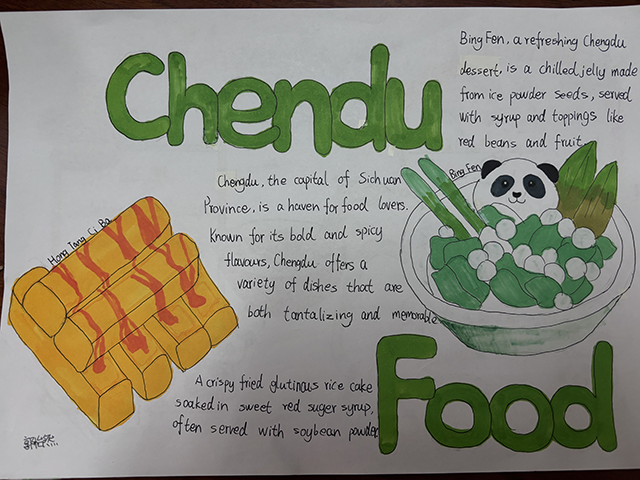 Chendu
Bing Fen, a refreshing Chengdu
dessert, is a chilled jelly made
from ice powder seeds, served
with syrup and toppings like
red beans and fruit.
Bing Fen
Chengdu, the capital of Sichuan
Province, is a haven for food lovers.
Known for its bold and spicy
flavours, Chengdu offers a
variety of dishes that are
both tantalizing and memorable
Hong Tang Ci Ba
A crispy fried glutinous rice cake
soaked in sweet red suger syrup,
often served with soybean powder
Food